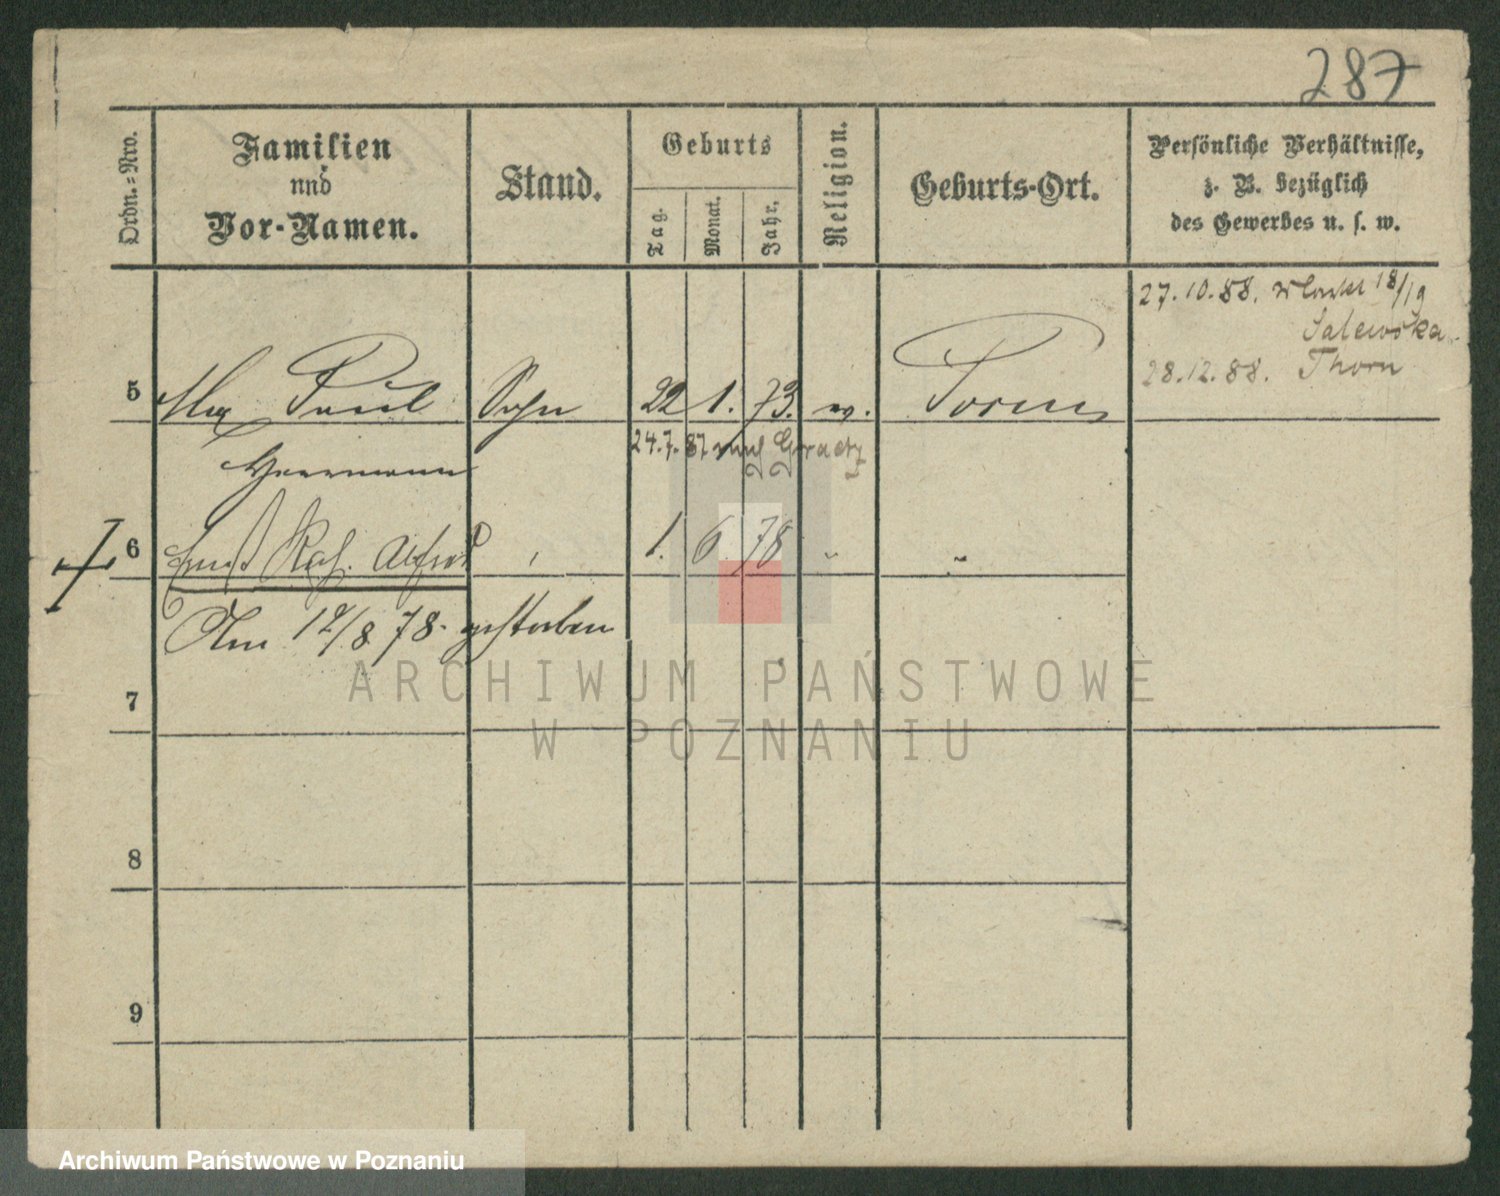 287
Ordn.-Nro.
Familien
und
Vor-Namen.
Stand.
Geburts
Tag.
Monat.
Jahr.
Religion.
Geburts-Ort.
Persönliche Verhältnisse,
z. B. bezüglich
des Gewerbes u. s. w.
27.10.88. 18/19
Salewska
28.12.88. Thorn
5 Max Paul Sohn 22 1. 73. ev. Posen
24.7.87 nach
Herrmann
6 Ernst Alfred 1. 6 78 " "
Am 12/8 78. gestorben
7
8
9
ARCHIWUM PAŃSTWOWE
W POZNANIU
Archiwum Państwowe w Poznaniu